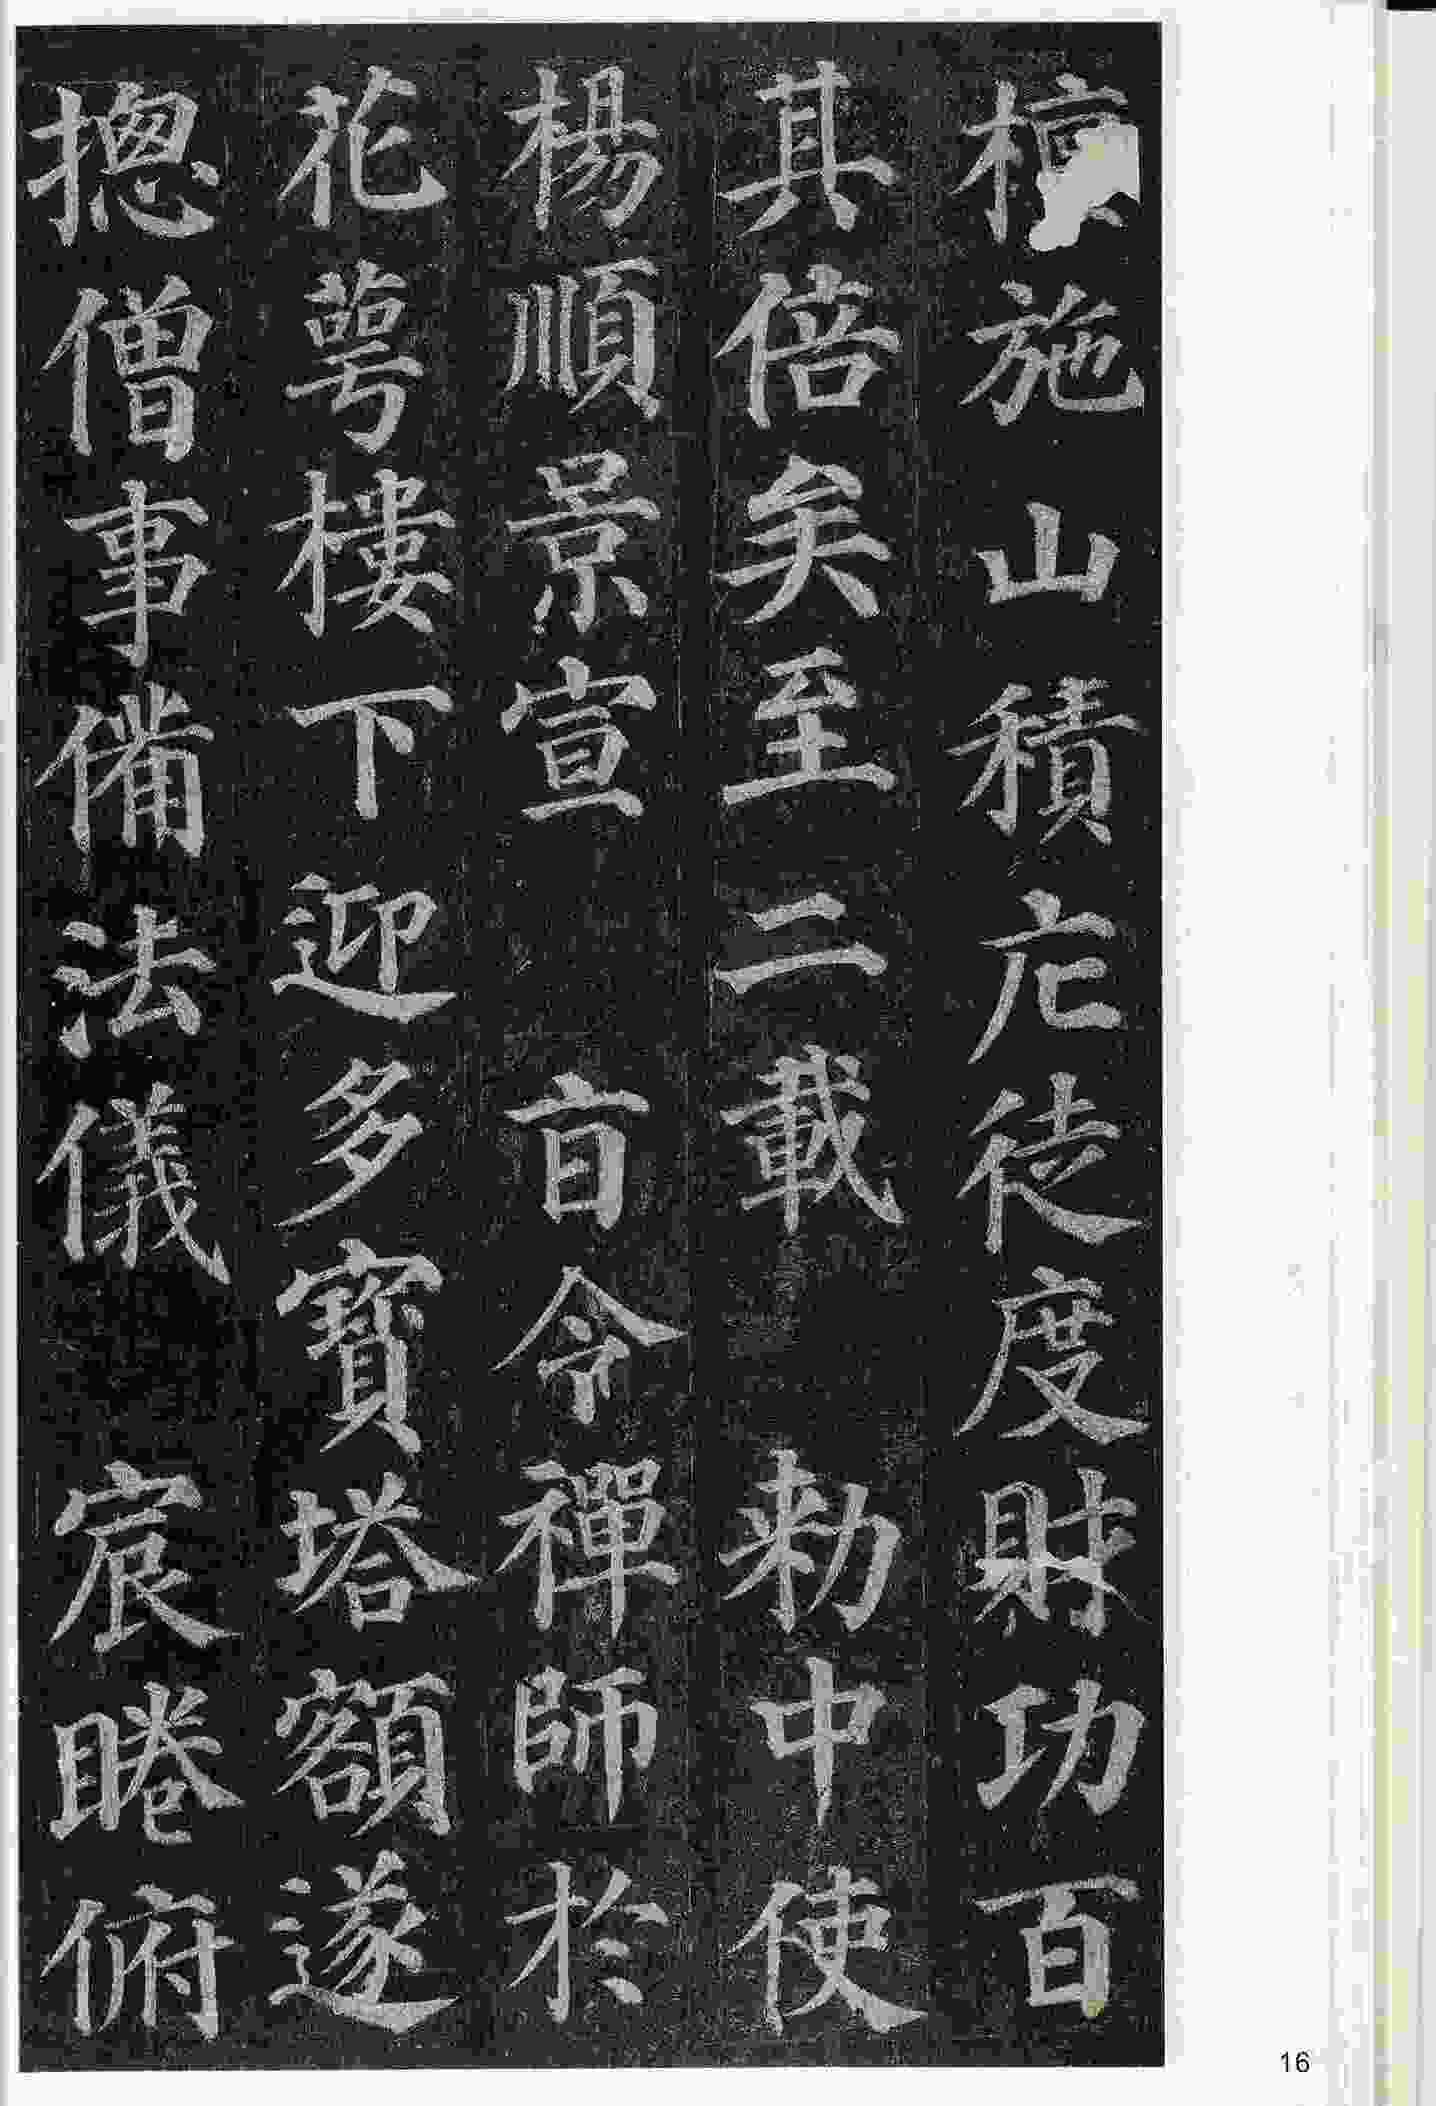 檀施山積庀徒度財功百
其倍矣至二載 勑中使
楊順景宣 旨令禪師於
花萼樓下迎多寶塔額遂
揔僧事備法儀 宸睠俯
16